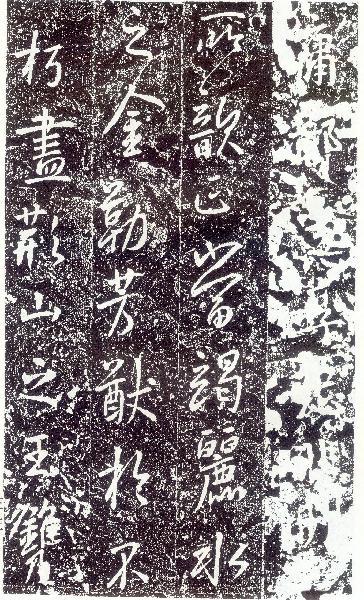 所歆正當竭麗水
之金勒芳猷於不
朽盡荊山之玉鐫